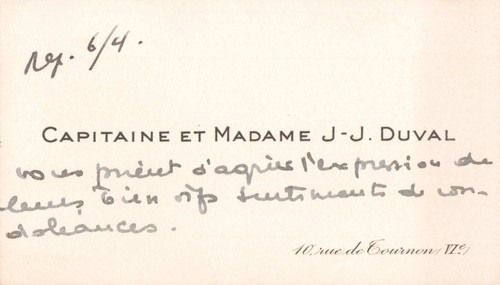 Rép. 6/4.
CAPITAINE ET MADAME J-J. DUVAL
vous prient d'agréer l'expression de
leurs bien vifs sentiments de con-
doléances.
10, rue de Tournon (VIe)